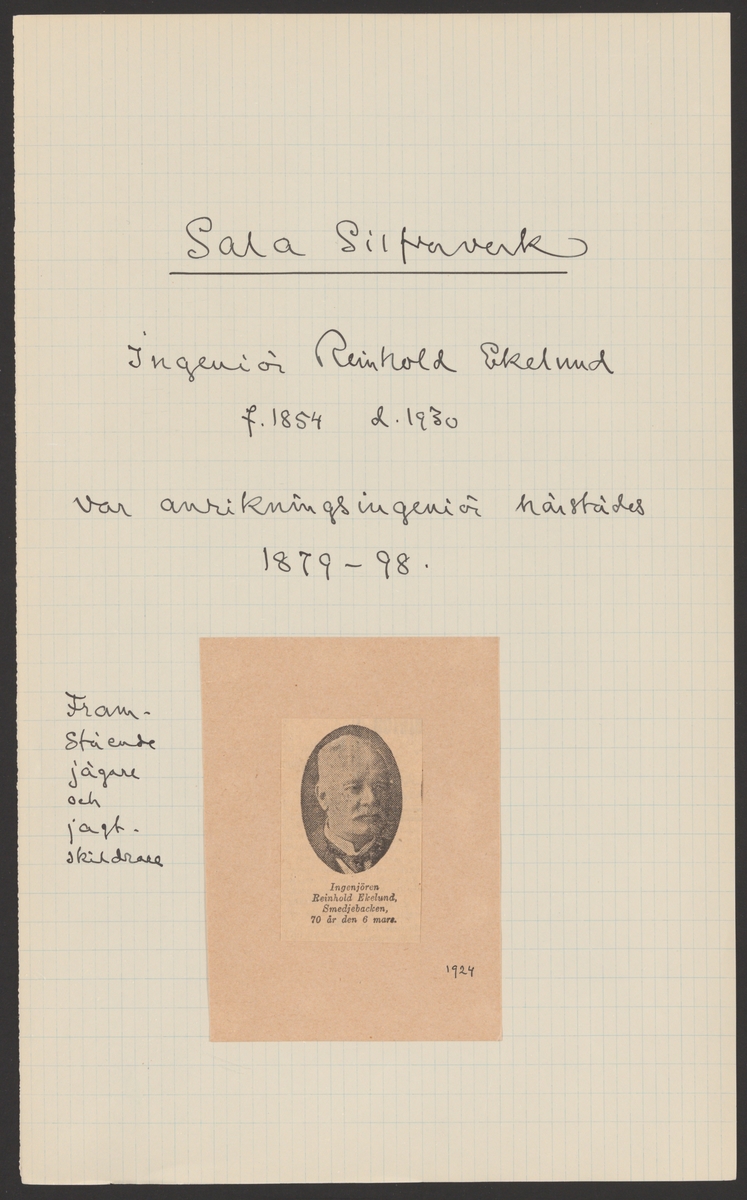 Sala Silfververk
Ingeniör Reinhold Ekelund
f. 1854 d. 1930
var anrikningsingeniör härstädes
1879 – 98.
Fram-
stående
jägare
och
jagt-
skildrare
Ingenjören
Reinhold Ekelund,
Smedjebacken,
70 år den 6 mars.
1924